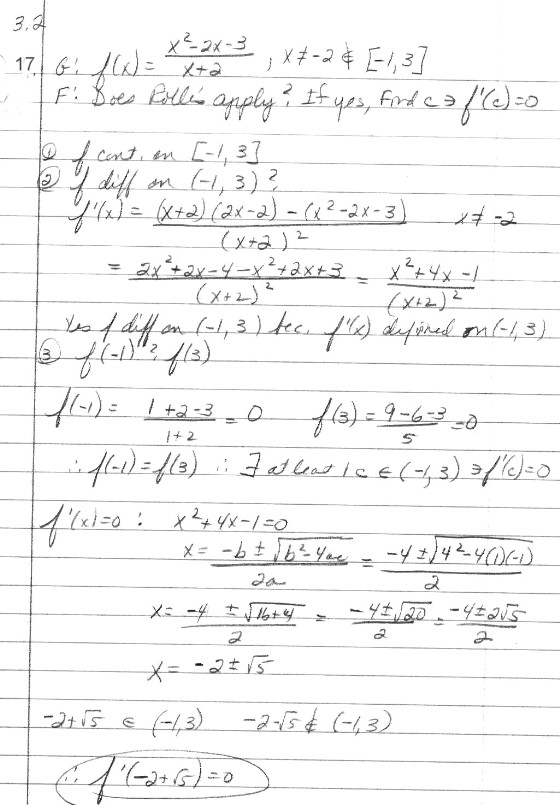 3.2
17. G: f(x) = (x²-2x-3)/(x+2) , x≠-2 ∉ [-1,3]
F: Does Rolle's apply? If yes, Find c ∋ f'(c)=0
① f cont. on [-1,3]
② f diff on (-1,3)?
f'(x) = ((x+2)(2x-2) - (x²-2x-3))/(x+2)² x≠-2
= (2x²+2x-4-x²+2x+3)/(x+2)² = (x²+4x-1)/(x+2)²
Yes f diff on (-1,3) bec. f'(x) defined on (-1,3)
③ f(-1) =? f(3)
f(-1) = (1+2-3)/(1+2) = 0 f(3) = (9-6-3)/5 = 0
∴ f(-1) = f(3) ∴ ∃ at least 1 c ∈ (-1,3) ∋ f'(c)=0
f'(x)=0 : x²+4x-1=0
x = (-b ± √(b²-4ac))/2a = (-4 ± √(4²-4(1)(-1)))/2
x = (-4 ± √(16+4))/2 = (-4±√20)/2 = (-4±2√5)/2
x = -2±√5
-2+√5 ∈ (-1,3) -2-√5 ∉ (-1,3)
∴ f'(-2+√5) = 0